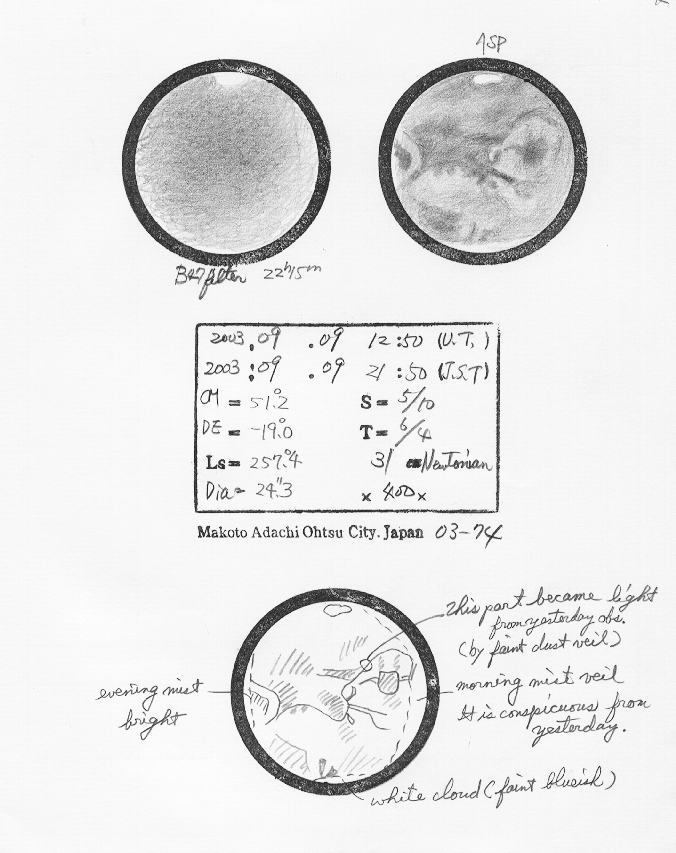 ↑SP
B47 filter 22h15m
2003.09.09 12:50 (U.T.)
2003:09.09 21:50 (J.S.T)
CM = 51.°2 S = 5/10
DE = -19.°0 T = 6/4
Ls = 257.°4 31 cm Newtonian
Dia = 24."3 × 400x
Makoto Adachi Ohtsu City. Japan 03-74
This part became light
from yesterday obs.
(by faint dust veil)
evening mist
bright
morning mist veil
It is conspicuous from
yesterday.
white cloud (faint blueish)